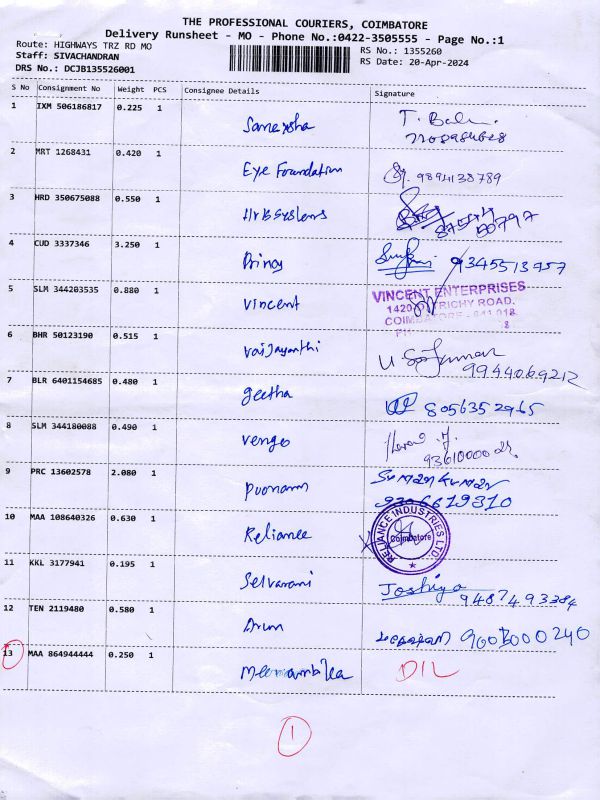 THE PROFESSIONAL COURIERS, COIMBATORE
Delivery Runsheet - MO - Phone No.:0422-3505555 - Page No.:1
Route: HIGHWAYS TRZ RD MO
RS No.: 1355260
Staff: SIVACHANDRAN
RS Date: 20-Apr-2024
DRS No.: DCJB135526001
S No Consignment No Weight PCS Consignee Details Signature
1 IXM 506186817 0.225 1
T. Bala
2 MRT 1268431 0.420 1 Eye Foundation 9894138789
3 HRD 350675088 0.550 1 HrB Systems
4 CUD 3337346 3.250 1 9345513757
5 SLM 344203535 0.880 1 Vincent
VINCENT ENTERPRISES
TRICHY ROAD.
COIMBATORE - 641 018
6 BHR 50123190 0.515 1 Vaijayanthi
9944069212
7 BLR 6401154685 0.480 1 geetha 8056352965
8 SLM 344180088 0.490 1 vengo
9 PRC 13602578 2.080 1 Poonam Sumankumar
10 MAA 108640326 0.630 1 Reliance
RELIANCE INDUSTRIES LTD
Coimbatore
11 KKL 3177941 0.195 1 Selvarani Joshiya
9487493384
12 TEN 2119480 0.580 1 Arun
13 MAA 864944444 0.250 1 Meenambika DIL
1